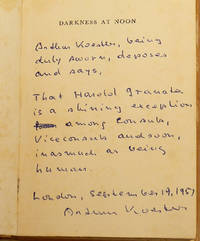 DARKNESS AT NOON
Arthur Koestler, being
duly sworn, deposes
and says,
That Harold Granata
is a shining exception
among Consuls,
Viceconsuls and soon,
inasmuch as being
human.
London, September 19, 1951
Arthur Koestler